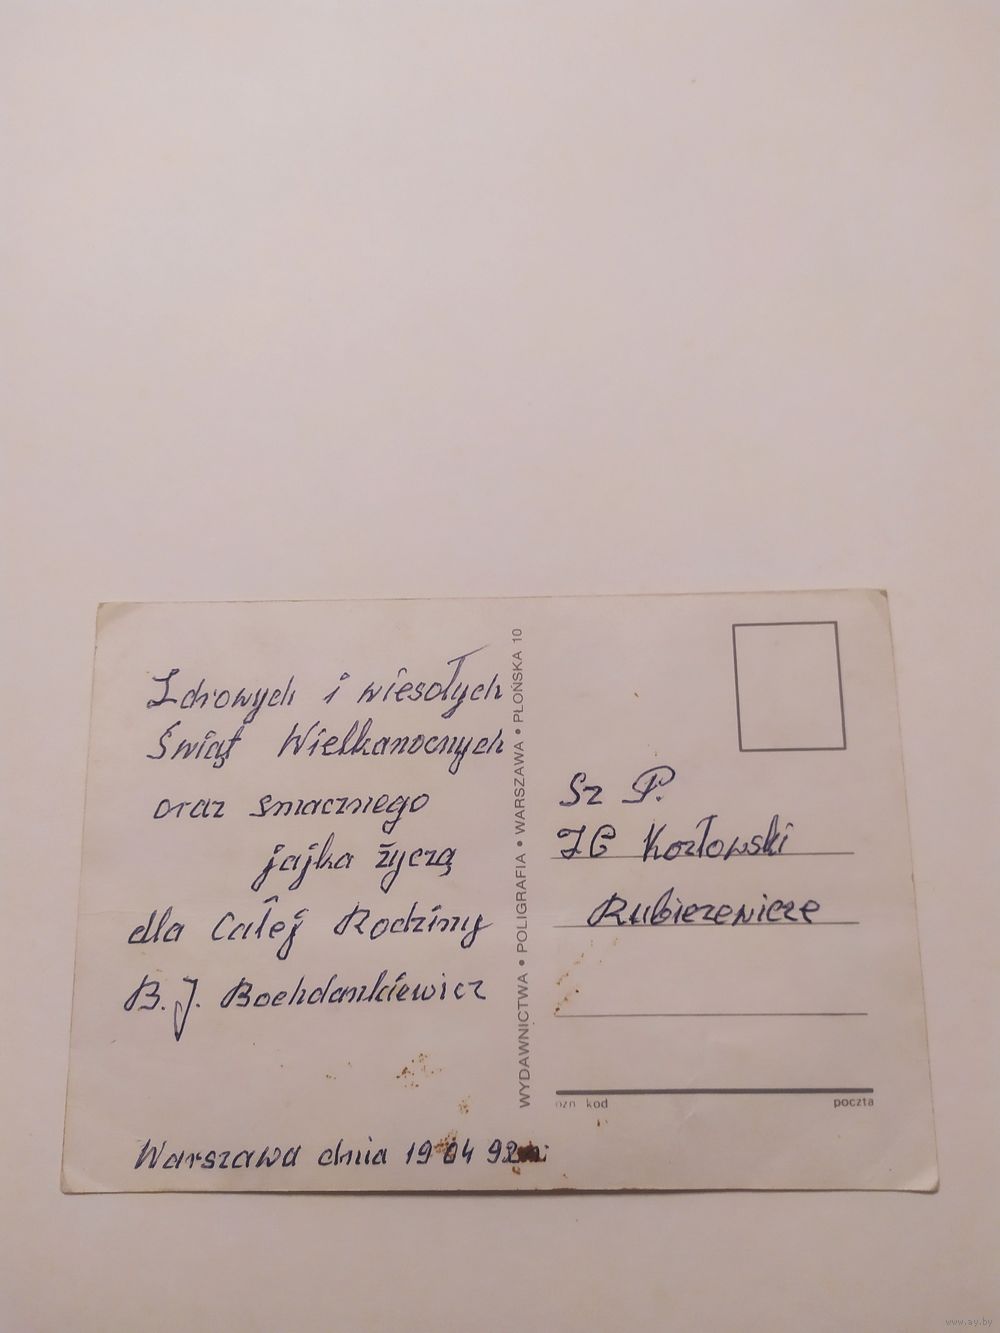 Zdrowych i wiesołych
Świąt Wielkanocnych
oraz smacznego
jajka życzą
dla Całej Rodziny
B. J. Bochdankiewicz
Warszawa dnia 19 04 92
WYDAWNICTWA • POLIGRAFIA • WARSZAWA • PŁOŃSKA 10
Sz P.
Kozłowski
Rubieżewicze
ozn kod
poczta
www.ay.by